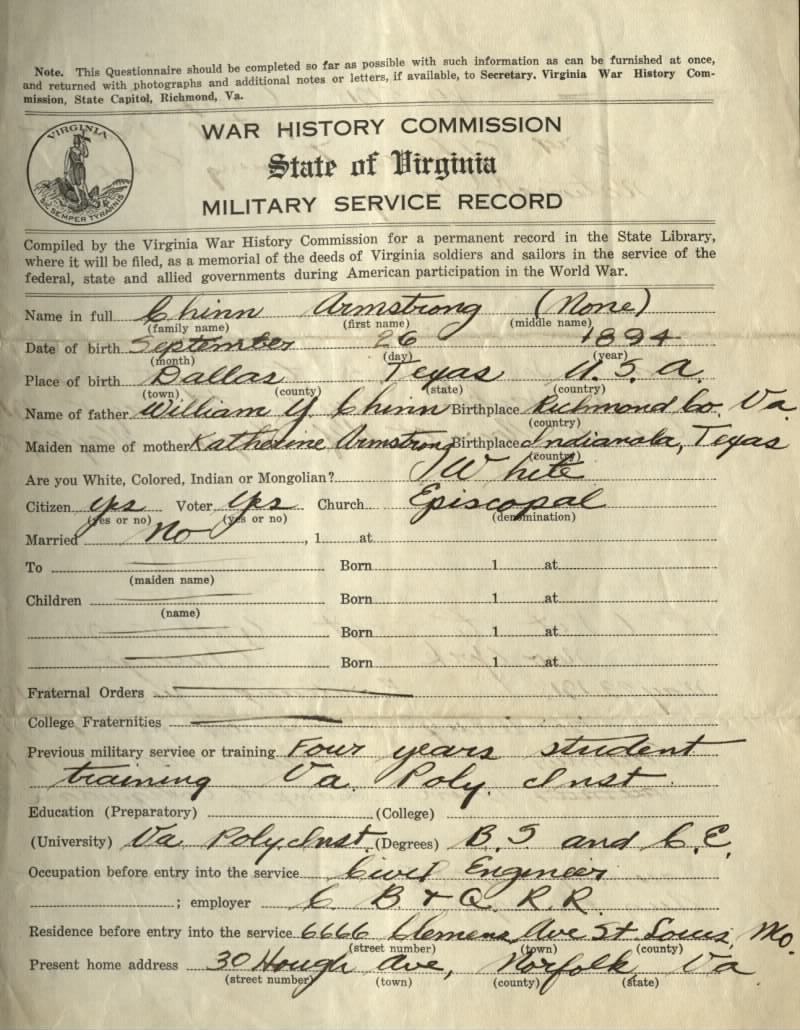 Note. This Questionnaire should be completed so far as possible with such information as can be furnished at once,
and returned with photographs and additional notes or letters, if available, to Secretary. Virginia War History Com-
mission, State Capitol, Richmond, Va.
VIRGINIA
SIC SEMPER TYRANNIS
WAR HISTORY COMMISSION
State of Virginia
MILITARY SERVICE RECORD
Compiled by the Virginia War History Commission for a permanent record in the State Library,
where it will be filed, as a memorial of the deeds of Virginia soldiers and sailors in the service of the
federal, state and allied governments during American participation in the World War.
Name in full Chinn Armstrong (None)
(family name) (first name) (middle name)
Date of birth September 26 1894
(month) (day) (year)
Place of birth Dallas Texas U.S.A.
(town) (county) (state) (country)
Name of father William Y. Chinn Birthplace Richmond Co. Va.
(country)
Maiden name of mother Katherine Armstrong Birthplace Indianola, Texas
(country)
Are you White, Colored, Indian or Mongolian? White
Citizen yes Voter yes Church Episcopal
(yes or no) (yes or no) (denomination)
Married No , 1 at
To Born 1 at
(maiden name)
Children Born 1 at
(name)
Born 1 at
Born 1 at
Fraternal Orders
College Fraternities
Previous military service or training Four years student
training Va. Poly. Inst.
Education (Preparatory) (College)
(University) Va Poly Inst. (Degrees) B.S and C.E.
Occupation before entry into the service Civil Engineer
; employer C. B & Q. R.R.
Residence before entry into the service 6666 Clemens Ave St. Louis, Mo.
(street number) (town) (county)
Present home address 30 Hough Ave, Norfolk, Va
(street number) (town) (county) (state)